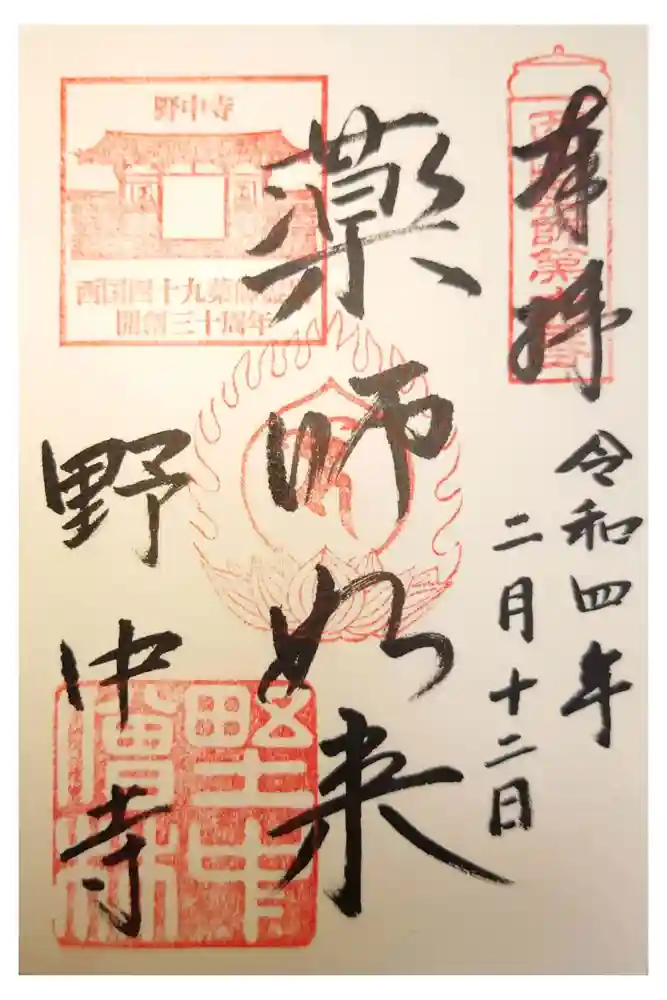 奉拝
令和四年
二月十二日
薬師如来
野中寺
野中寺
西国四十九薬師霊場
開創三十周年